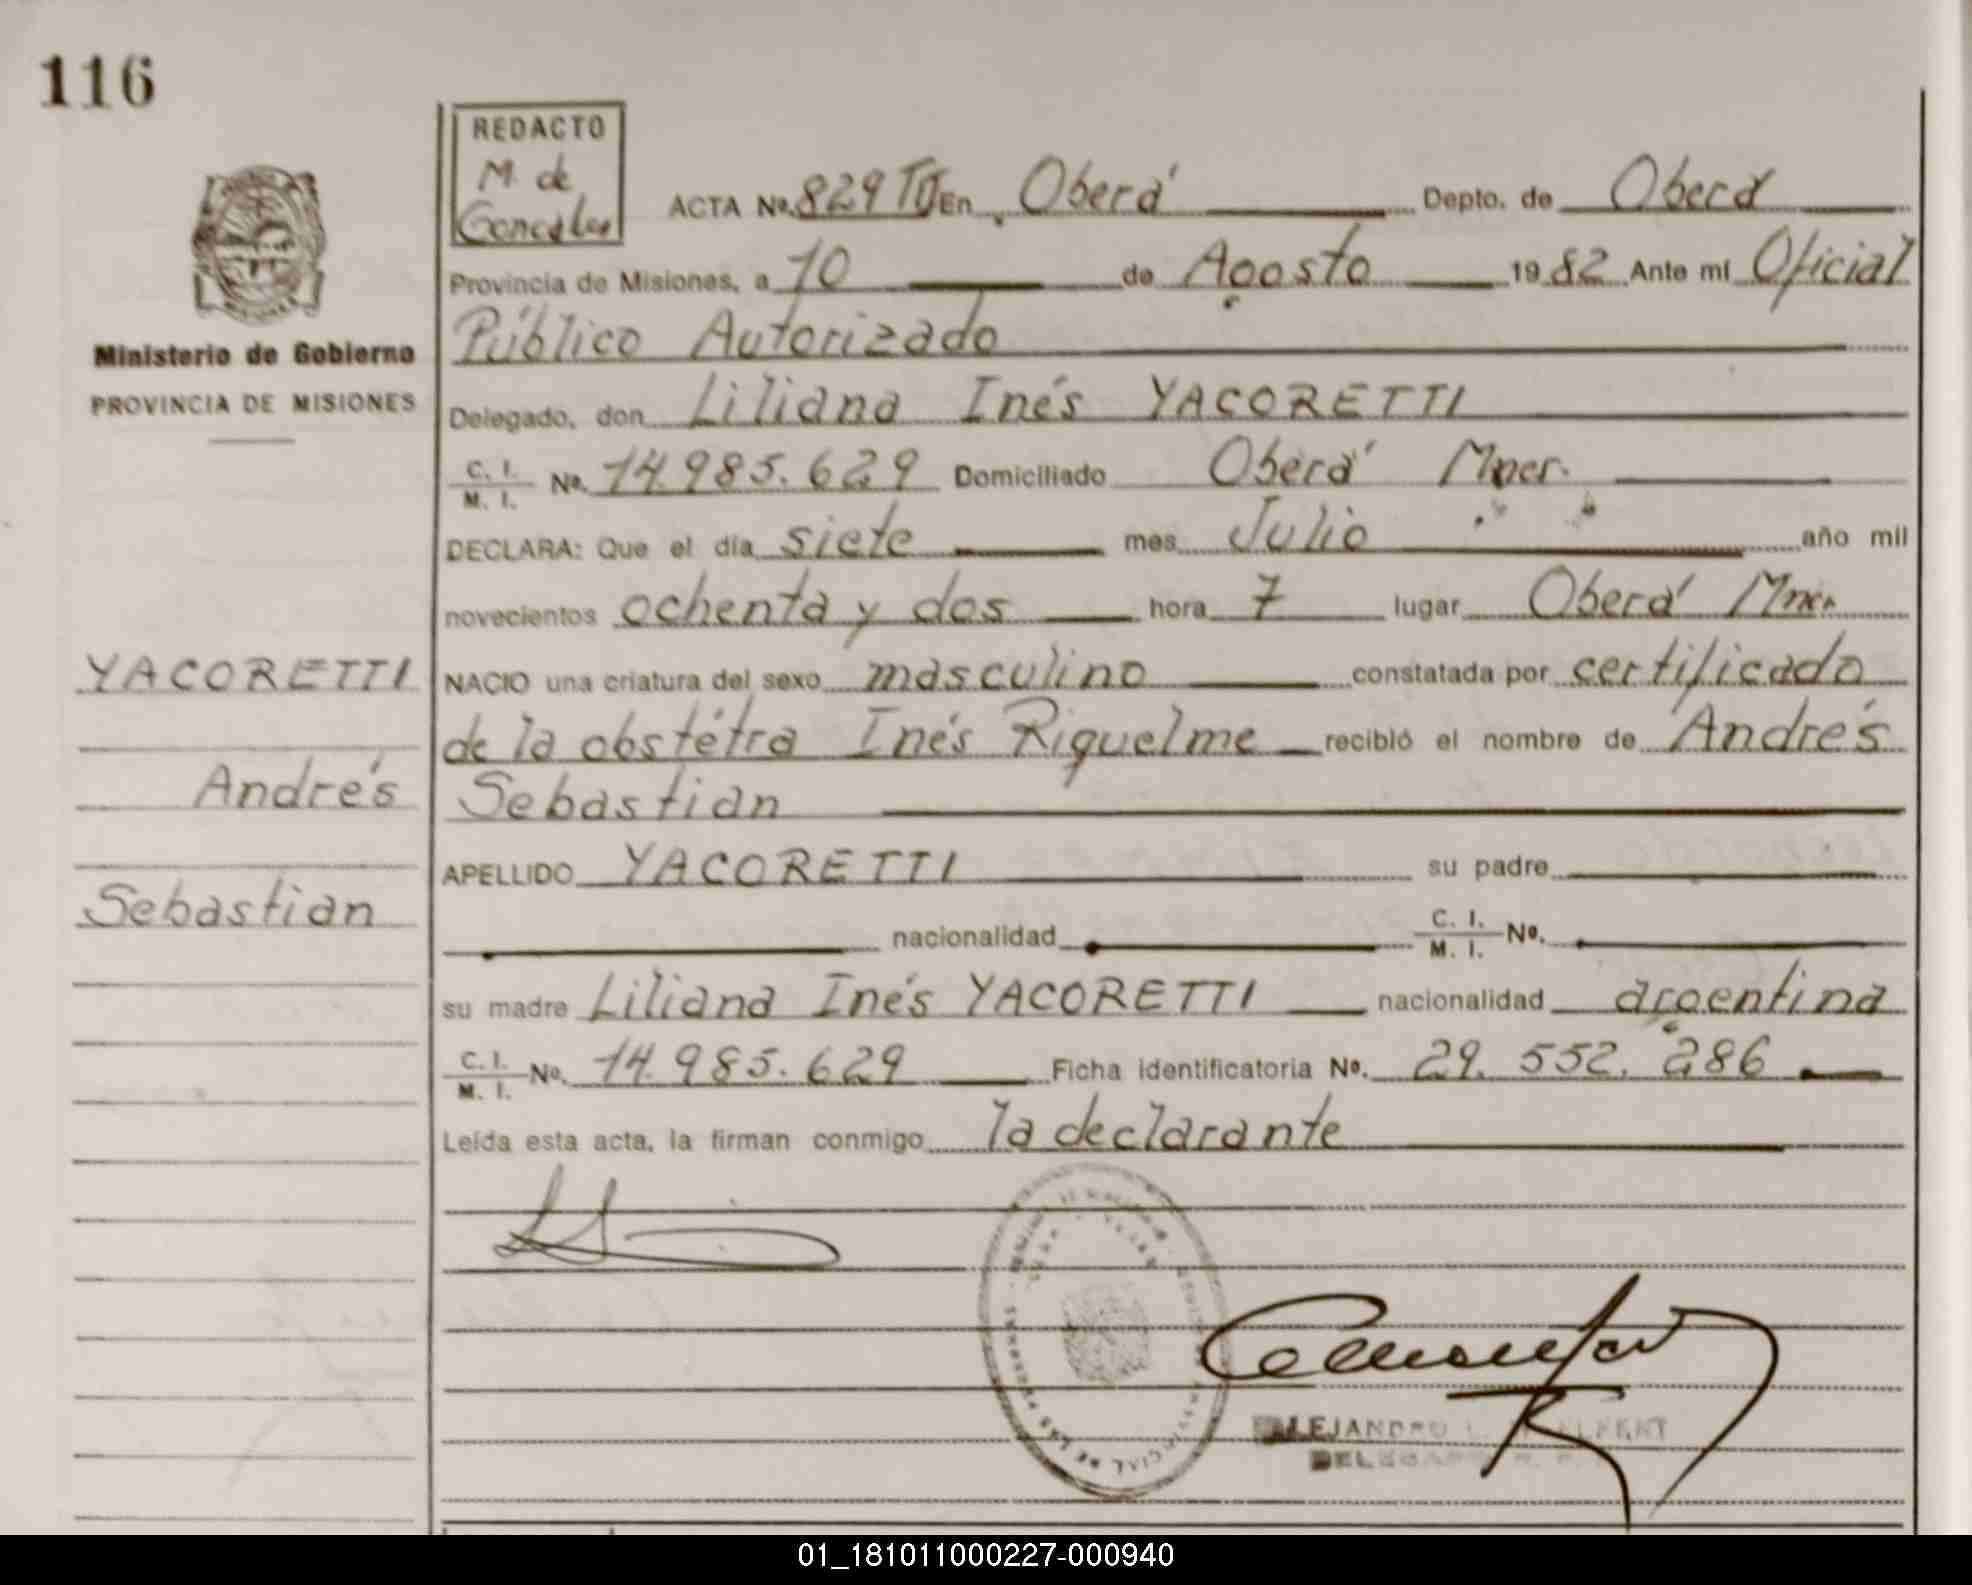 116
REDACTO
M. de
Gonzalez
ACTA Nº. 829 TII En Oberá Depto. de Oberá
Provincia de Misiones, a 10 de Agosto 19 82 Ante mí Oficial
Público Autorizado
Ministerio de Gobierno
PROVINCIA DE MISIONES
Delegado, don Liliana Inés YACORETTI
C. I.
M. I. Nº. 14.985.629 Domiciliado Oberá Mnes.
DECLARA: Que el día siete mes Julio año mil
novecientos ochenta y dos hora 7 lugar Oberá Mnes.
YACORETTI
Andrés
Sebastian
NACIO una criatura del sexo masculino constatada por certificado
de la obstétra Inés Riquelme recibió el nombre de Andrés
Sebastian
APELLIDO YACORETTI su padre
nacionalidad C. I.
M. I. Nº.
su madre Liliana Inés YACORETTI nacionalidad argentina
C. I.
M. I. Nº. 14.985.629 Ficha identificatoria Nº. 29.552.286
Leída esta acta, la firman conmigo la declarante
ALEJANDRO
DELEGADO
01_181011000227-000940